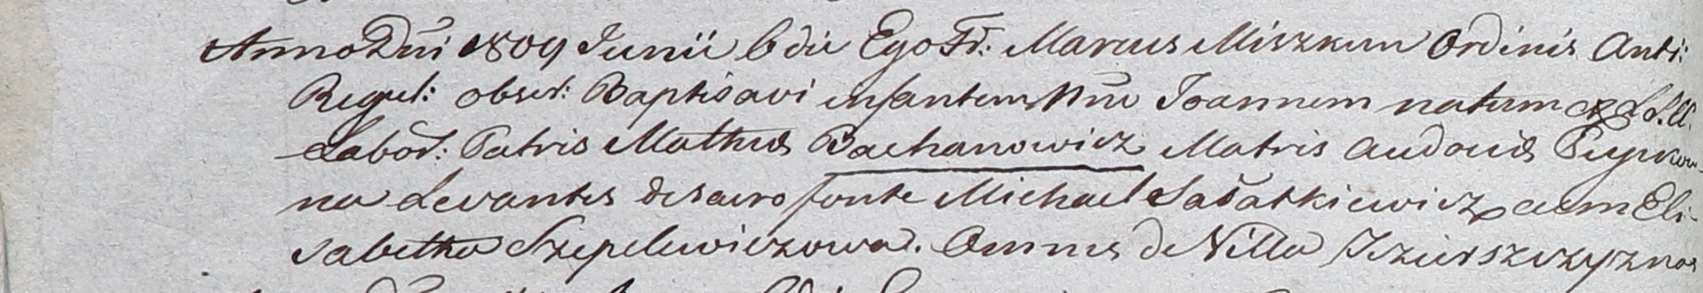 Anno Dni 1809 Junii 6 die Ego Fr: Marcus Miszkun Ordinis Anti:
Regul: obser: Baptisavi infantem Nne Joannem natum ex L. M.
Labor: Patris Matheus Bachanowicz Matris Audocia
na Levantes de sacro fonte Michael Sadatkiewicz cum Eli-
sabetha Szepelewiczowa. Omnes de Villa